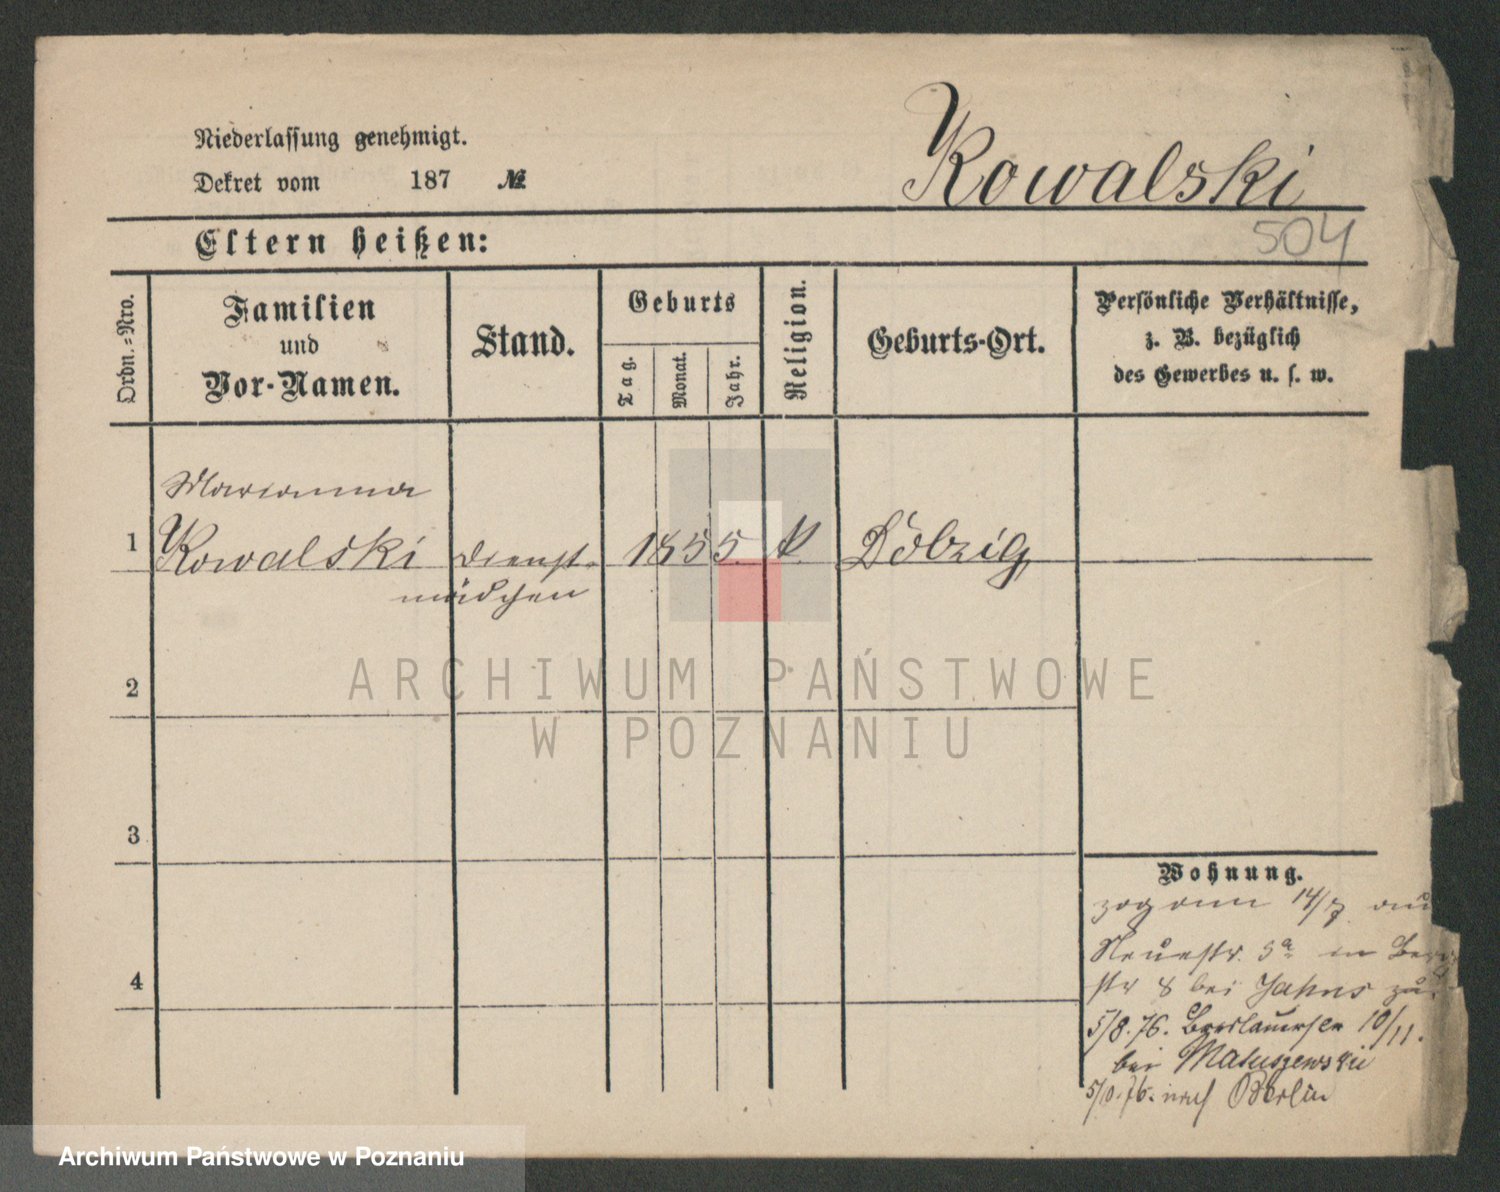 Niederlassung genehmigt.
Dekret vom 187 №
Kowalski
504
Eltern heißen:
Ordn.=Nro.
Familien
und
Vor-Namen.
Stand.
Geburts
Tag.
Monat.
Jahr.
Religion.
Geburts-Ort.
Persönliche Verhältnisse,
z. B. bezüglich
des Gewerbes u. s. w.
Marianna
1 Kowalski Dienst- 1855. k. Dobzig
mädchen
2
3
4
ARCHIWUM PAŃSTWOWE
W POZNANIU
Wohnung.
14/7
Neuestr. 5a in
str 8 bei Jahns
5/8.76. Breslauerstr 10/11.
bei Matuszewski
nach Berlin
Archiwum Państwowe w Poznaniu